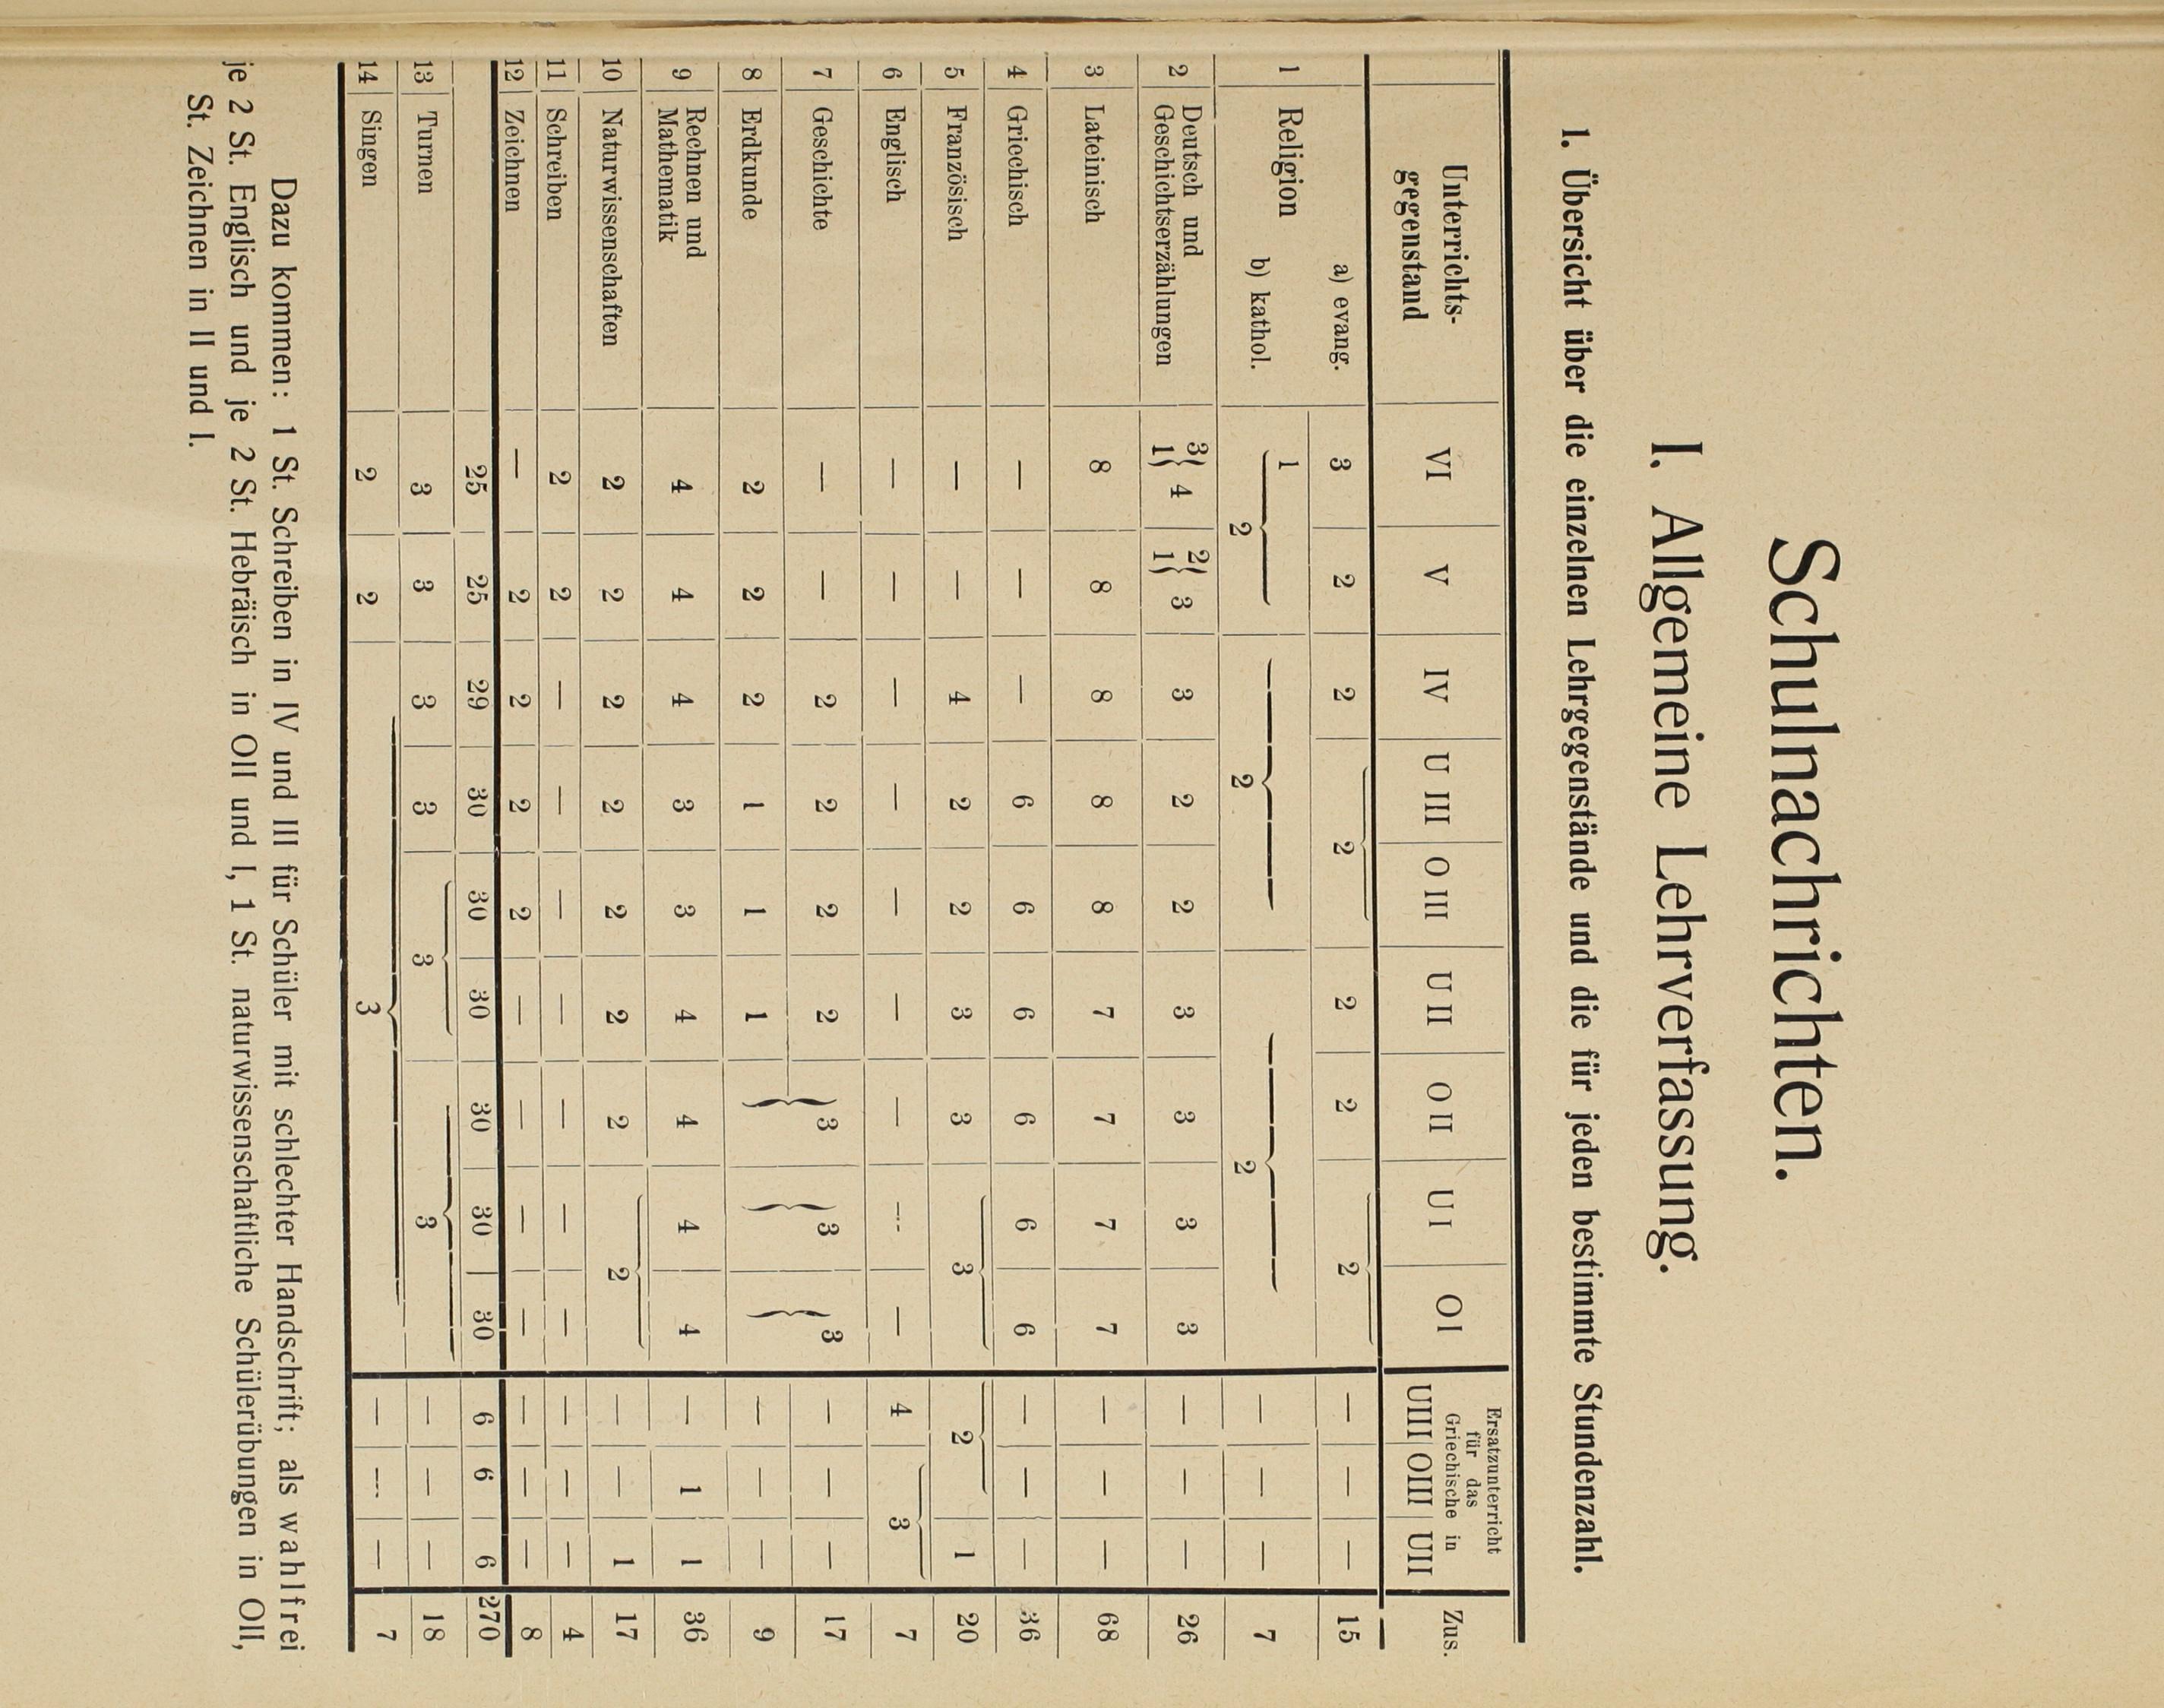 Schulnachrichten.
I. Allgemeine Lehrverfassung.
1. Übersicht über die einzelnen Lehrgegenstände und die für jeden bestimmte Stundenzahl.
Unterrichts-
gegenstand VI V IV U III O III U II O II U I O I Ersatzunterricht
für das
Griechische in
UIII OIII UII Zus.
1 Religion a) evang. 3 2 2 2 2 2 2 — — — 15
b) kathol. 1 2 2 2 — — — 7
2 Deutsch und
Geschichtserzählungen 3 1 } 4 2 1 } 3 3 2 2 3 3 3 3 — — — 26
3 Lateinisch 8 8 8 8 8 7 7 7 7 — — — 68
4 Griechisch — — — 6 6 6 6 6 6 — — — 36
5 Französisch — — 4 2 2 3 3 3 2 1 20
6 Englisch — — — — — — — — — 4 3 7
7 Geschichte — — 2 2 2 2 } 3 } 3 } 3 — — — 17
8 Erdkunde 2 2 2 1 1 1 — — — 9
9 Rechnen und
Mathematik 4 4 4 3 3 4 4 4 4 — 1 1 36
10 Naturwissenschaften 2 2 2 2 2 2 2 2 — — 1 17
11 Schreiben 2 2 — — — — — — — — — — 4
12 Zeichnen — 2 2 2 2 — — — — — — — 8
25 25 29 30 30 30 30 30 30 6 6 6 270
13 Turnen 3 3 3 3 3 3 — — — 18
14 Singen 2 2 3 — — — 7
Dazu kommen: 1 St. Schreiben in IV und III für Schüler mit schlechter Handschrift; als wahlfrei
je 2 St. Englisch und je 2 St. Hebräisch in OII und I, 1 St. naturwissenschaftliche Schülerübungen in OII,
St. Zeichnen in II und I.